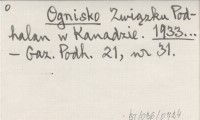 Ognisko Związku Pod-
halan w Kanadzie. 1933...
– Gaz. Podh. 21, nr 31.